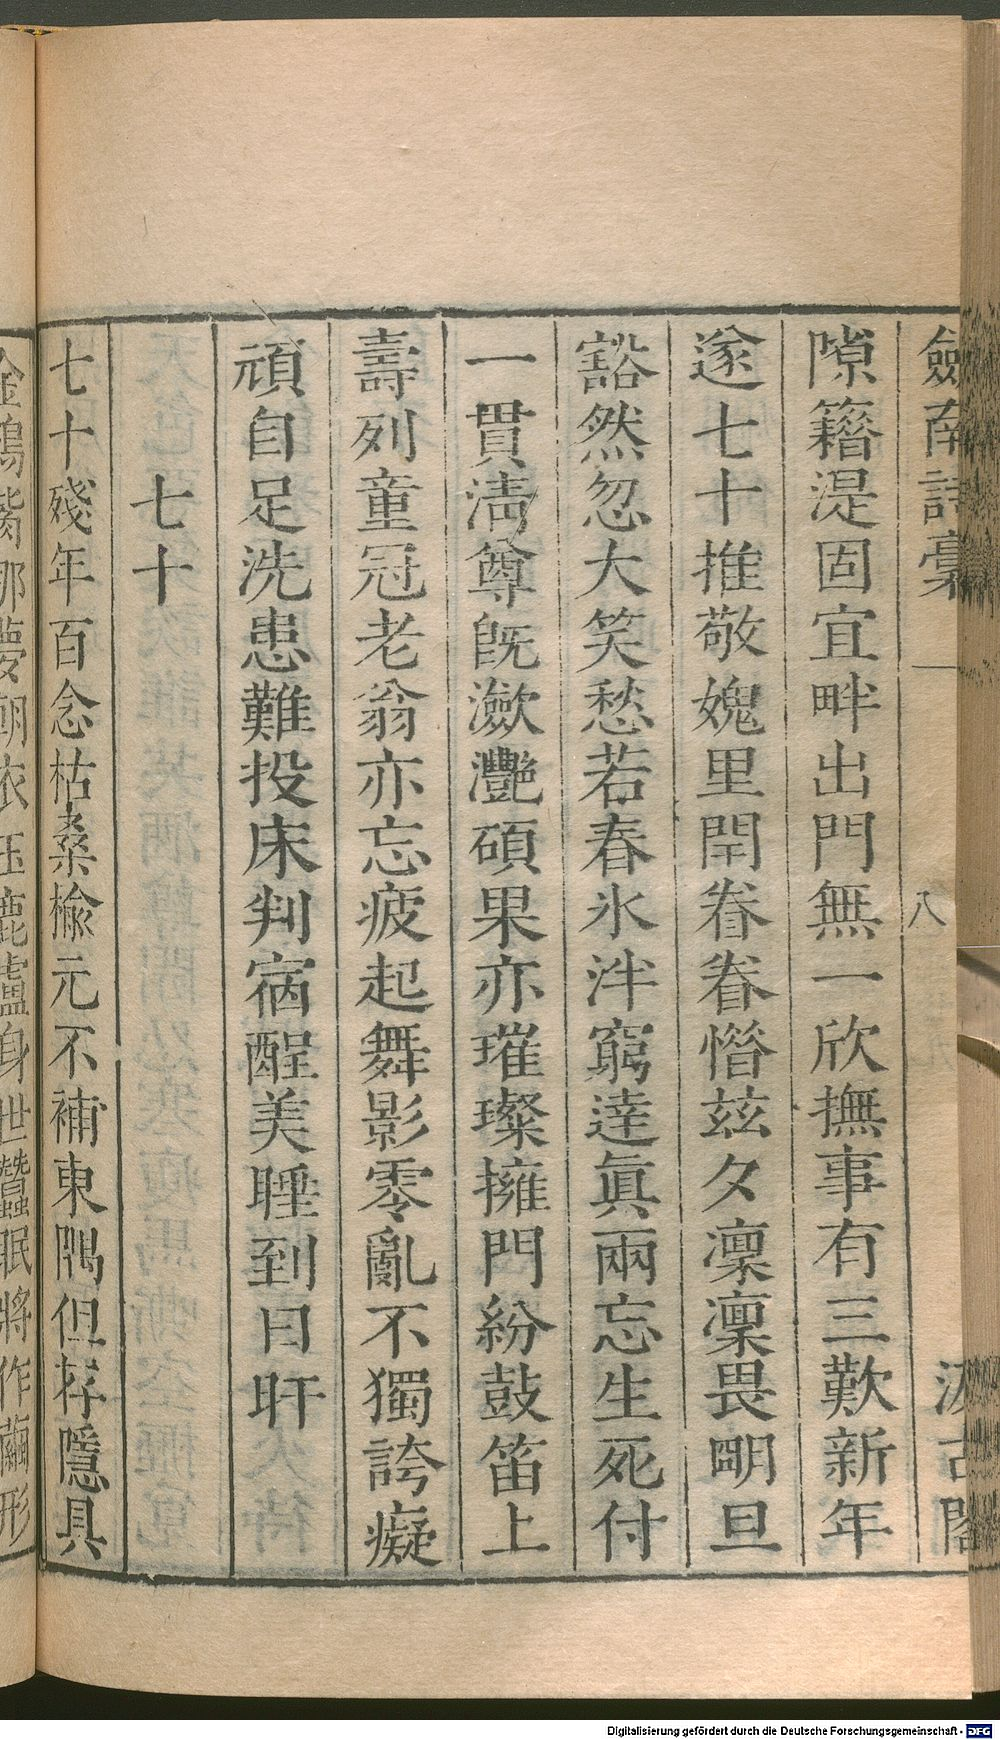 劍南詩稾 一 八 汲古閣
隙籍湜固宜畔出門無一欣撫事有三歎新年
遂七十推敬媿里閈眷眷惜茲夕凜凜畏明旦
豁然忽大笑愁若春氷泮窮達眞兩忘生死付
一貫淸尊旣瀲灩碩果亦璀璨擁門紛鼓笛上
壽列童冠老翁亦忘疲起舞影零亂不獨誇癡
頑自足洗患難投床判宿酲美睡到日旰
七十
七十殘年百念枯桑楡元不補東隅但存隱具
金鵶觜那夢朝衣玉鹿盧身世蠶眠將作繭形
Digitalisierung gefördert durch die Deutsche Forschungsgemeinschaft - DFG